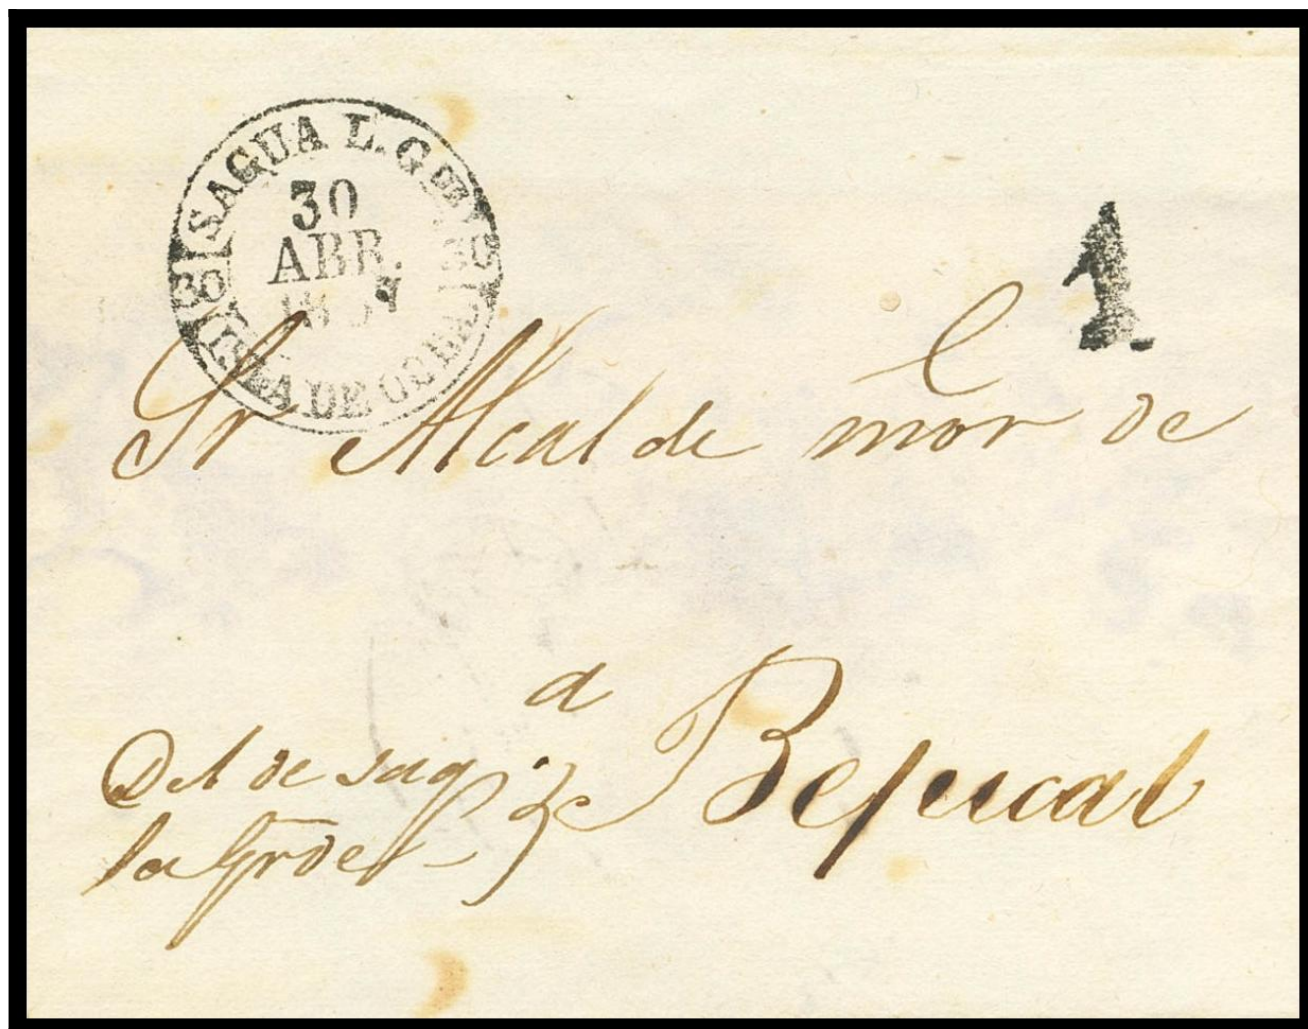 SAGUA L. GDE
30
ABR.
ISLA DE CUBA
1
Sr Alcalde mor de
a
Bejucal
Del de sag
la Grde